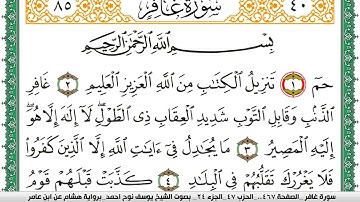 ٨٥ سُورَةُ غَافِر ٤٠
بِسْمِ اللَّهِ الرَّحْمَٰنِ الرَّحِيمِ
حمٓ ١ تَنزِيلُ الْكِتَابِ مِنَ اللَّهِ الْعَزِيزِ الْعَلِيمِ ٢ غَافِرِ
الذَّنۢبِ وَقَابِلِ التَّوْبِ شَدِيدِ الْعِقَابِ ذِي الطَّوْلِ لَآ إِلَٰهَ إِلَّا هُوَ
إِلَيْهِ الْمَصِيرُ ٣ مَا يُجَادِلُ فِيٓ ءَايَاتِ اللَّهِ إِلَّا الَّذِينَ كَفَرُوا
فَلَا يَغْرُرْكَ تَقَلُّبُهُمْ فِي الْبِلَادِ ٤ كَذَّبَتْ قَبْلَهُمْ قَوْمُ
سورة غافر_ الصفحة ٤٦٧.. الحزب ٤٧_الجزء ٢٤_ بصوت الشيخ يوسف نوح احمد_برواية هشام عن ابن عامر